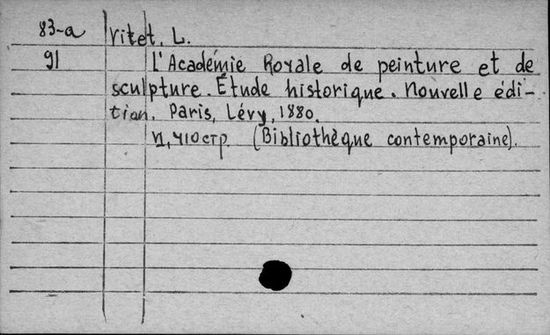 83-a Vitet, L.
91 L'Académie Royale de peinture et de
sculpture. Étude historique. Nouvelle édi-
tion. Paris, Lévy, 1880.
410 стр. (Bibliothèque contemporaine).